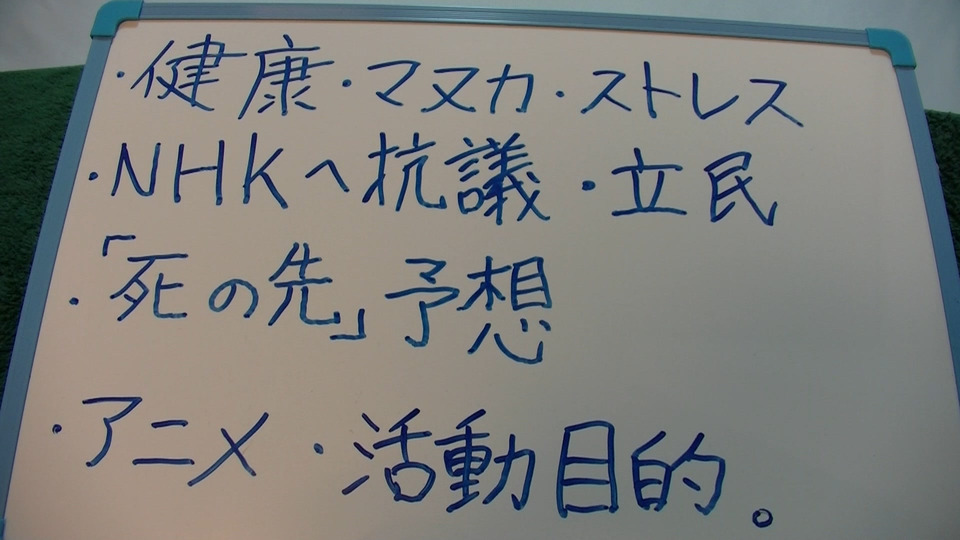 ・健康・マヌカ・ストレス
・NHKへ抗議・立民
・「死の先」予想
・アニメ・活動目的。